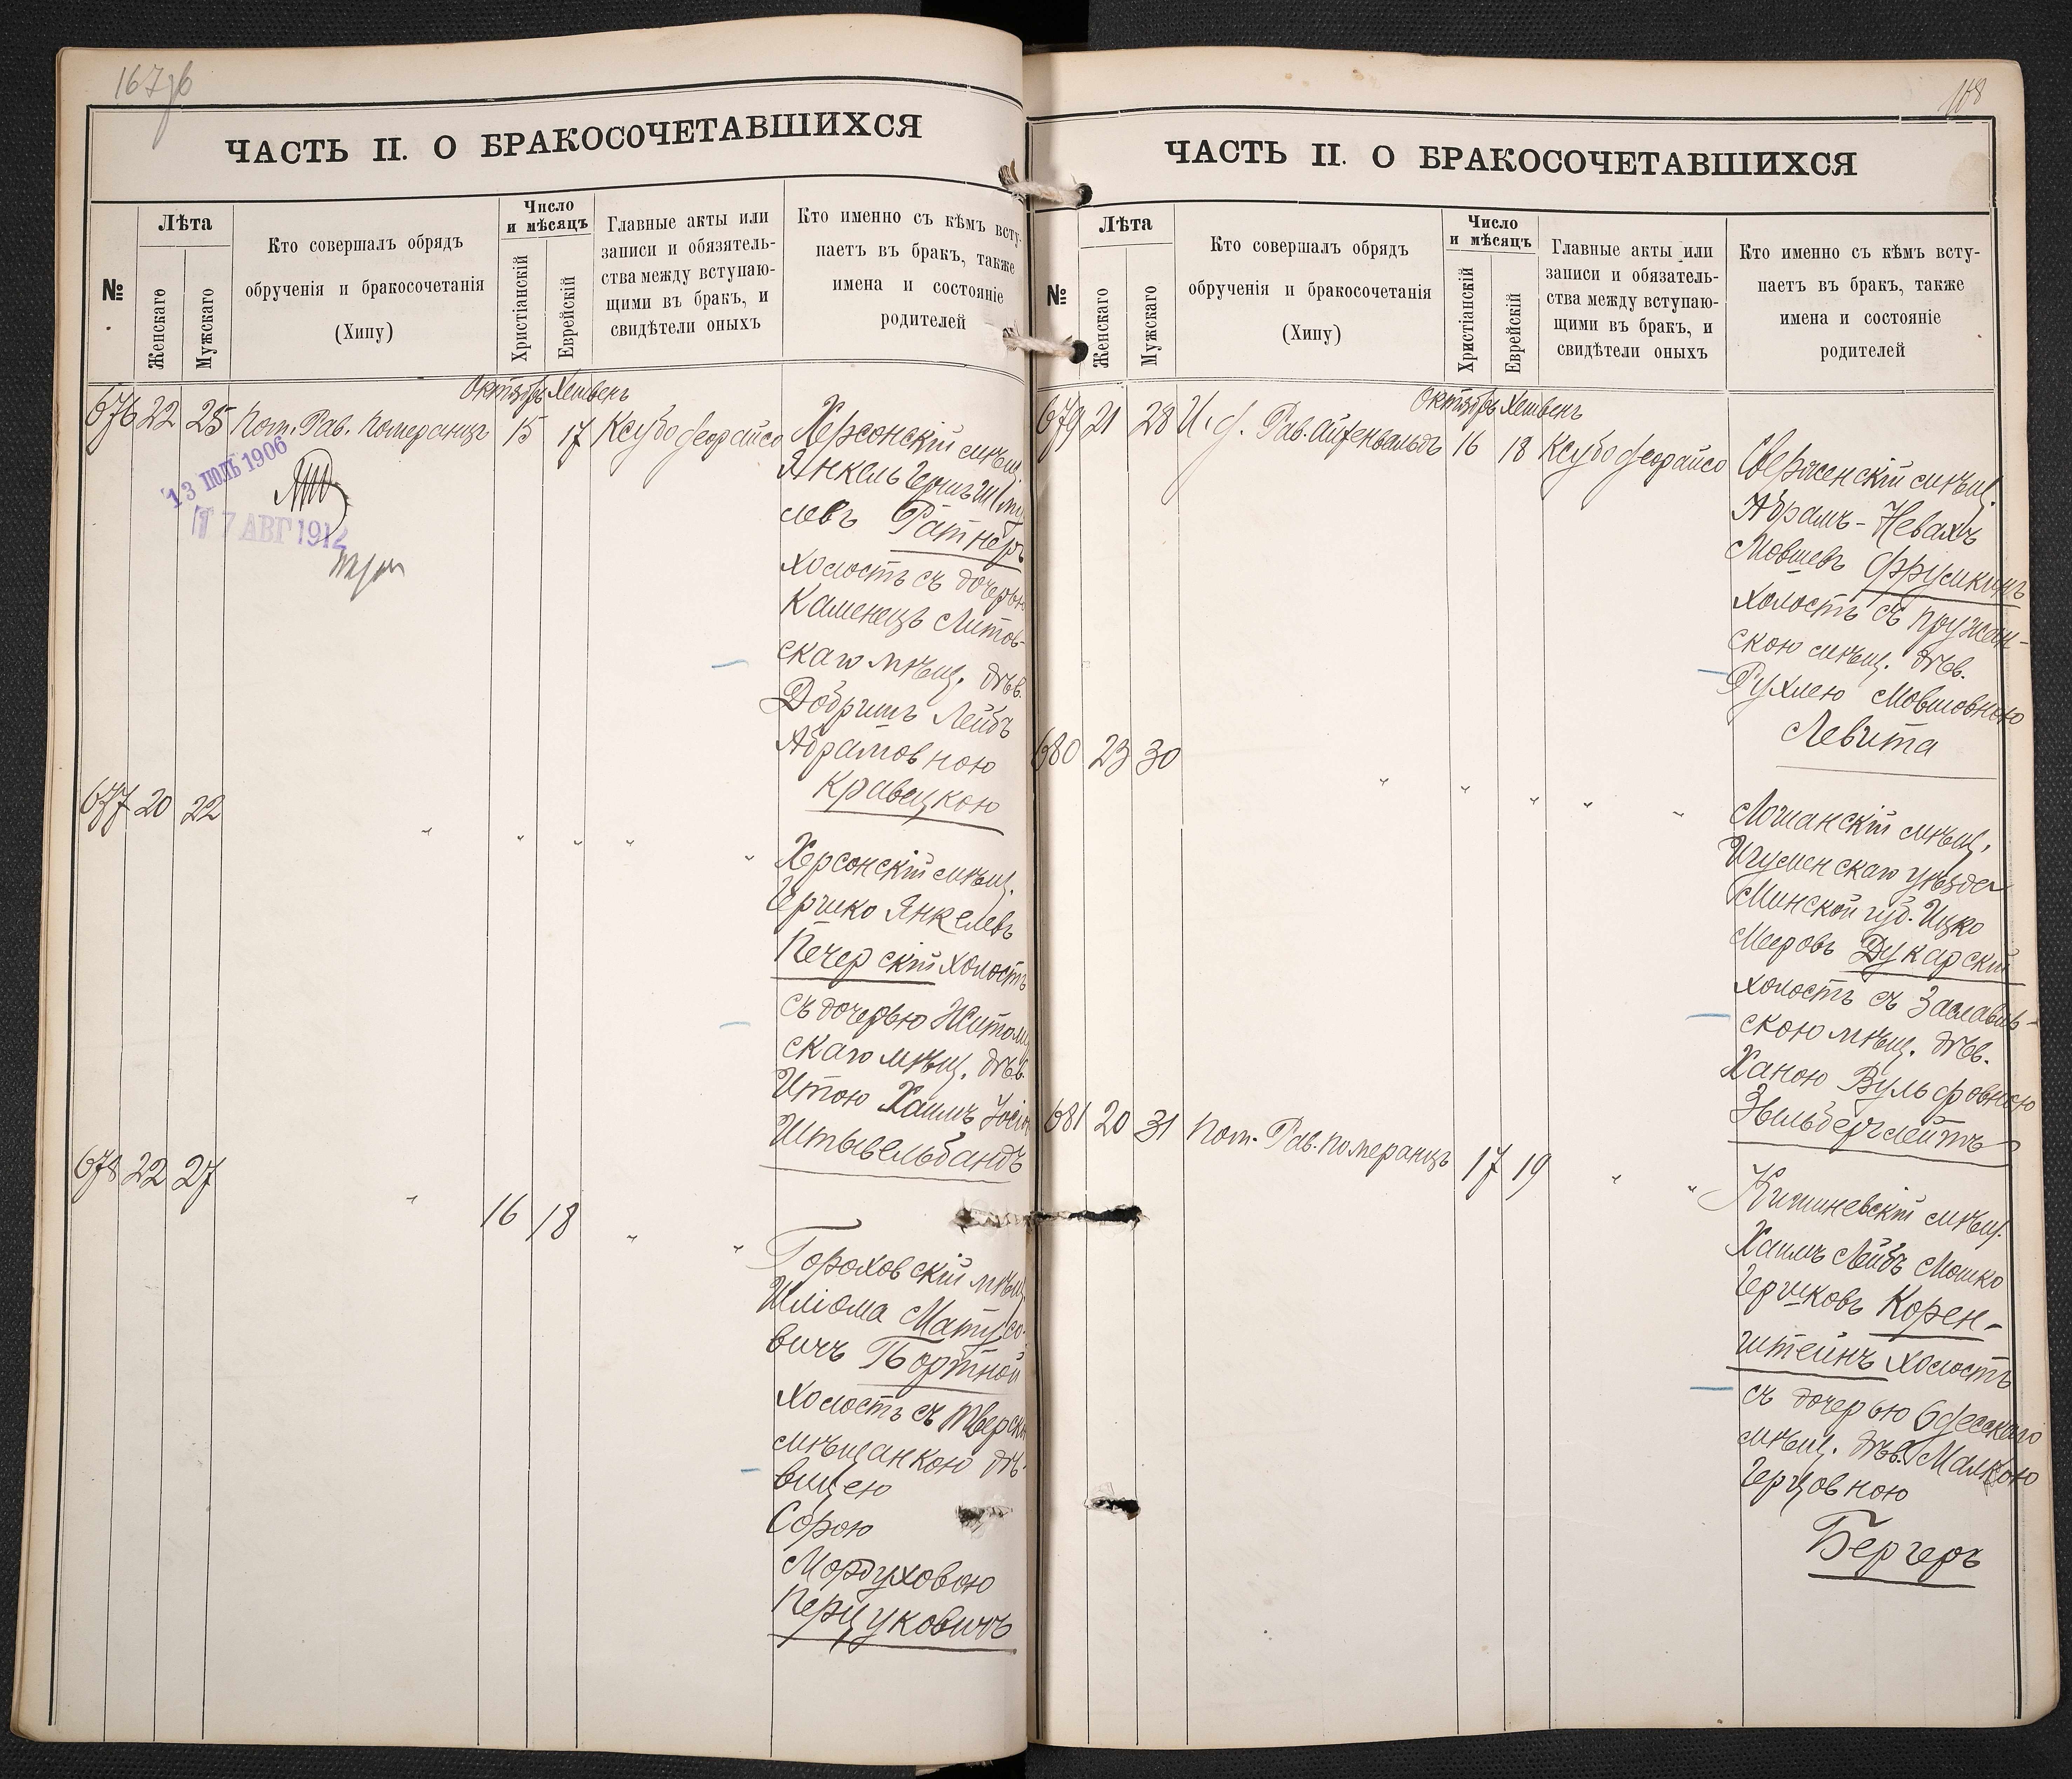 167об
ЧАСТЬ II. О БРАКОСОЧЕТАВШИХСЯ
№
Лѣта
Женскаго
Мужскаго
Кто совершалъ обрядъ
обрученія и бракосочетанія
(Хипу)
Число
и мѣсяцъ
Христіанскій
Еврейскій
Главные акты или
записи и обязятель-
ства между вступаю-
щими въ бракъ, и
свидѣтели оныхъ
Кто именно съ кѣмъ всту-
паетъ въ бракъ, также
имена и состояніе
родителей
Октябрь Хешвенъ
676 22 25 Пот. Рав. Померанцъ 15 17 Ксубо деорайсо
Херсонскій мѣщ.
Янкель Герш Шму
левъ Ратнеръ
холостъ съ дочерью
Каменецъ Литов-
скаго мѣщ. дѣв.
Добришъ Лейбъ
Абрамовною
Кравецкою
13 ІЮЛЬ 1906
17 АВГ 1912
677 20 22 " " " " "
Херсонскій мѣщ.
Гершко Янкелевъ
Печерскій холостъ
съ дочерью Житоми
скаго мѣщ. дѣв.
Итою Хаимъ Іосіо
Штывельбандъ
678 22 27 " 16 18 " "
Гороховскій мѣщ
Шліома Матусо-
вичъ Портной
холостъ съ Тверско
мѣщанкою дѣ-
вицею
Сорою
Мордуховою
Перцуковичъ
168
ЧАСТЬ II. О БРАКОСОЧЕТАВШИХСЯ
№
Лѣта
Женскаго
Мужскаго
Кто совершалъ обрядъ
обрученія и бракосочетанія
(Хипу)
Число
и мѣсяцъ
Христіанскій
Еврейскій
Главные акты или
записи и обязатель-
ства между вступаю-
щими въ бракъ, и
свидѣтели оныхъ
Кто именно съ кѣмъ всту-
паетъ въ бракъ, также
имена и состояніе
родителей
Октябрь Хешвенъ
679 21 28 И. д. Рав. Айзенвальдъ 16 18 Ксубо деорайсо
Сверженскій мѣщ.
Абрамъ-Невахъ
Мовшевъ Фрумкинъ
холостъ съ Пружан-
скою мѣщ. дѣв.
Рухлею Мовшовною
Левита
680 23 30 " " " " "
Логшанскій мѣщ,
Игуменскаго уѣзда
Минской губ. Ицко
Мееровъ Дукарскій
холостъ съ Заславль-
скою мѣщ. дѣв.
Ханою Вульфовною
Зильберглейтъ
681 20 31 Пот. Рав. Померанцъ 17 19 " "
Кишиневскій мѣщ.
Хаимъ Лейбъ Мошко
Гершковъ Корен-
штейнъ холостъ
съ дочерью Одесскаго
мѣщ. дѣв. Малкою
Герцовною
Бергеръ